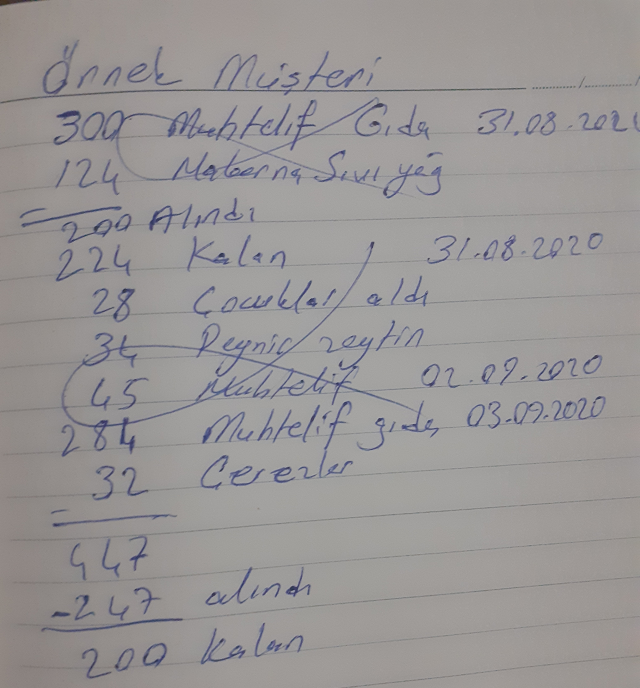 Örnek Müşteri
300 Muhtelif Gıda 31.08.202
124 Makarna Sıvı yağ
= 200 Alındı
224 Kalan 31.08.2020
28 Çocuklar aldı
34 Peynir zeytin
45 Muhtelif 02.09.2020
284 Muhtelif gıda 03.09.2020
32 Çerezler
=
447
-247 alındı
200 Kalan